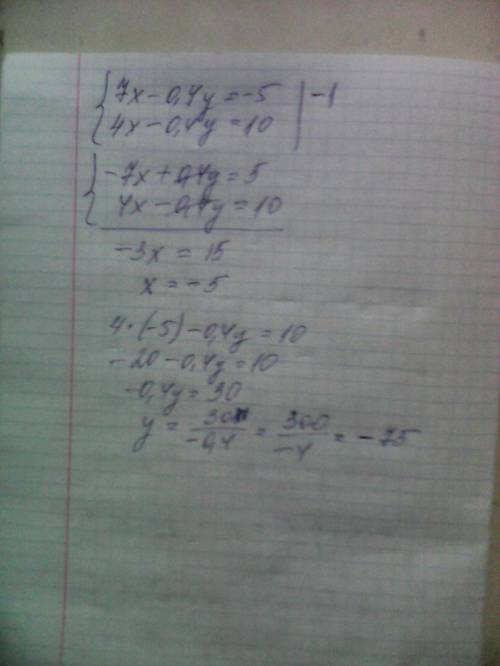 {7x-0,4y=-5 | -1
{4x-0,4y=10
{-7x+0,4y=5
{4x-0,4y=10
-3x=15
x=-5
4·(-5)-0,4y=10
-20-0,4y=10
-0,4y=30
y=30/-0,4=300/-4=-75